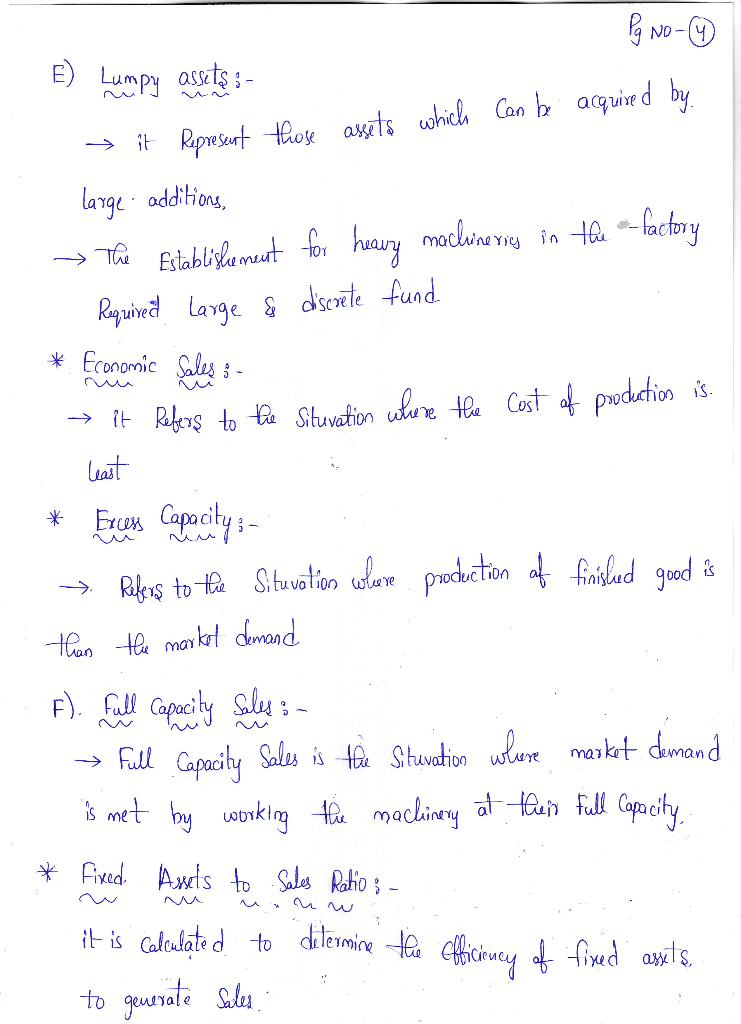 Pg No - 4
E) Lumpy assets :-
→ it Represent those assets which Can be acquired by.
large additions,
→ The Establishement for heavy machineries in the factory
Required Large & discrete fund
* Economic Sales :-
→ it Refers to the Situvation where the Cost of production is.
least
* Excess Capacity :-
→. Refers to the Situvation where production of finished good is
than the market demand
F). Full Capacity Sales :-
→ Full Capacity Sales is the Situvation where market demand
is met by working the machinery at their full Capacity.
* Fixed Assets to Sales Ratio :-
it is Calculated to determine the Efficiency of fixed assets.
to generate Sales.